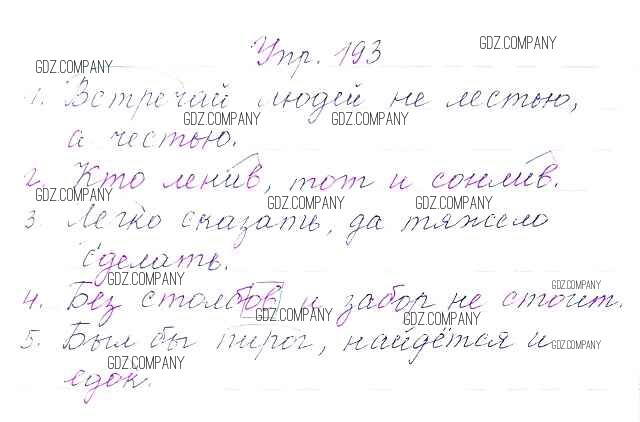 Упр. 193
GDZ.COMPANY
GDZ.COMPANY
1. Встречай людей не лестью,
GDZ.COMPANY GDZ.COMPANY
а честью.
2. Кто ленив, тот и сонлив.
GDZ.COMPANY GDZ.COMPANY GDZ.COMPANY
3. Легко сказать, да тяжело
сделать.
GDZ.COMPANY GDZ.COMPANY
4. Без столбов и забор не стоит.
GDZ.COMPANY GDZ.COMPANY
5. Был бы пирог, найдётся и
GDZ.COMPANY GDZ.COMPANY
едок.